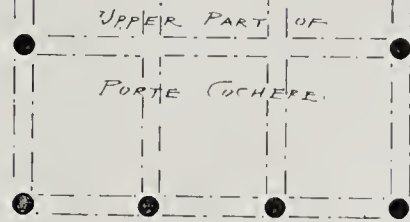 UPPER PART OF
PORTE COCHERE.